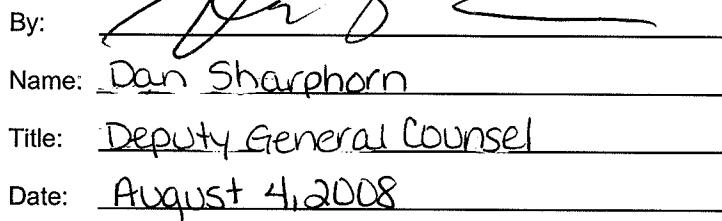 By:
Name: Dan Sharphorn
Title: Deputy General Counsel
Date: August 4, 2008